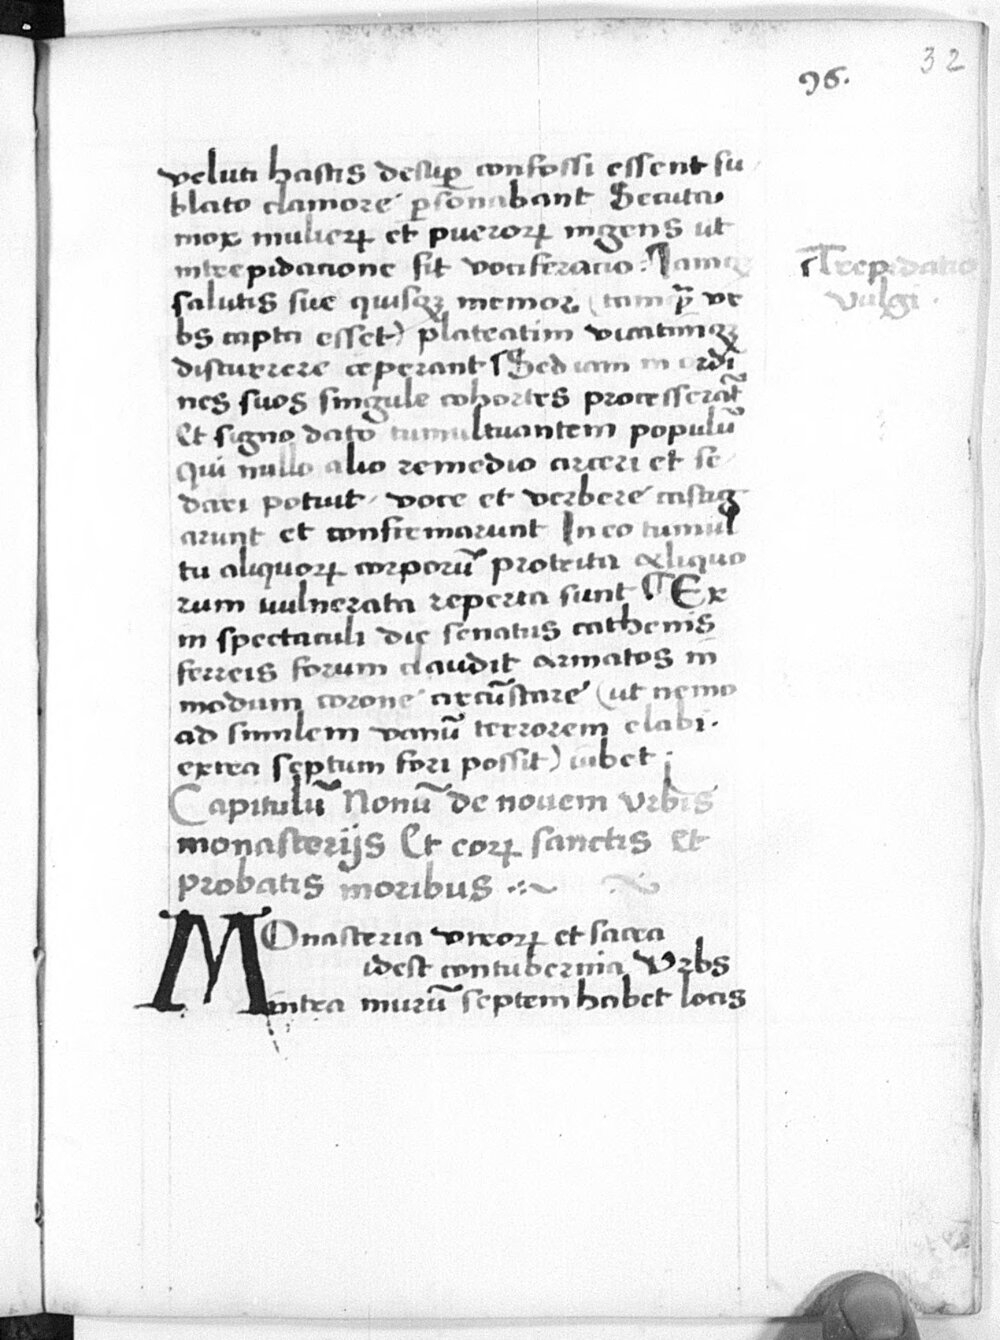 96.
32
veluti hastis desup̱ confossi essent su
blato clamore p̱sonabant Secuta
mox mulierꝝ et puerorꝝ ingens ut
intrepidacione fit vociferacio: ¶Iamqꝫ
¶Trepidatio
vulgi.
salutis sue quisqꝫ memor (tamqᷓ vr
bs capta esset) plateatim vicatimqꝫ
discurrere ceperant ¶Sed iam in ordi
nes suos singule cohortes processerāt
Et signo dato tumultuantem populū
qui nullo alio remedio arceri et se
dari potuit voce et verbere castig
arunt et confirmarunt In eo tumul
tu aliquorꝝ corporū protrita aliquo
rum uulnerata reperta sunt ¶Ex
in spectaculi die senatus cathenis
ferreis forum claudit armatos in
modum corone circūstare (ut nemo
ad similem vanū terrorem elabi
extra septum fori possit) iubet ;
Capitulū Nonū de nouem vrbis
monasterijs Et eorꝝ sanctis et
probatis moribus
MOnasteria virorꝝ et sacra
idest contubernia Vrbs
intra murū septem habet locis